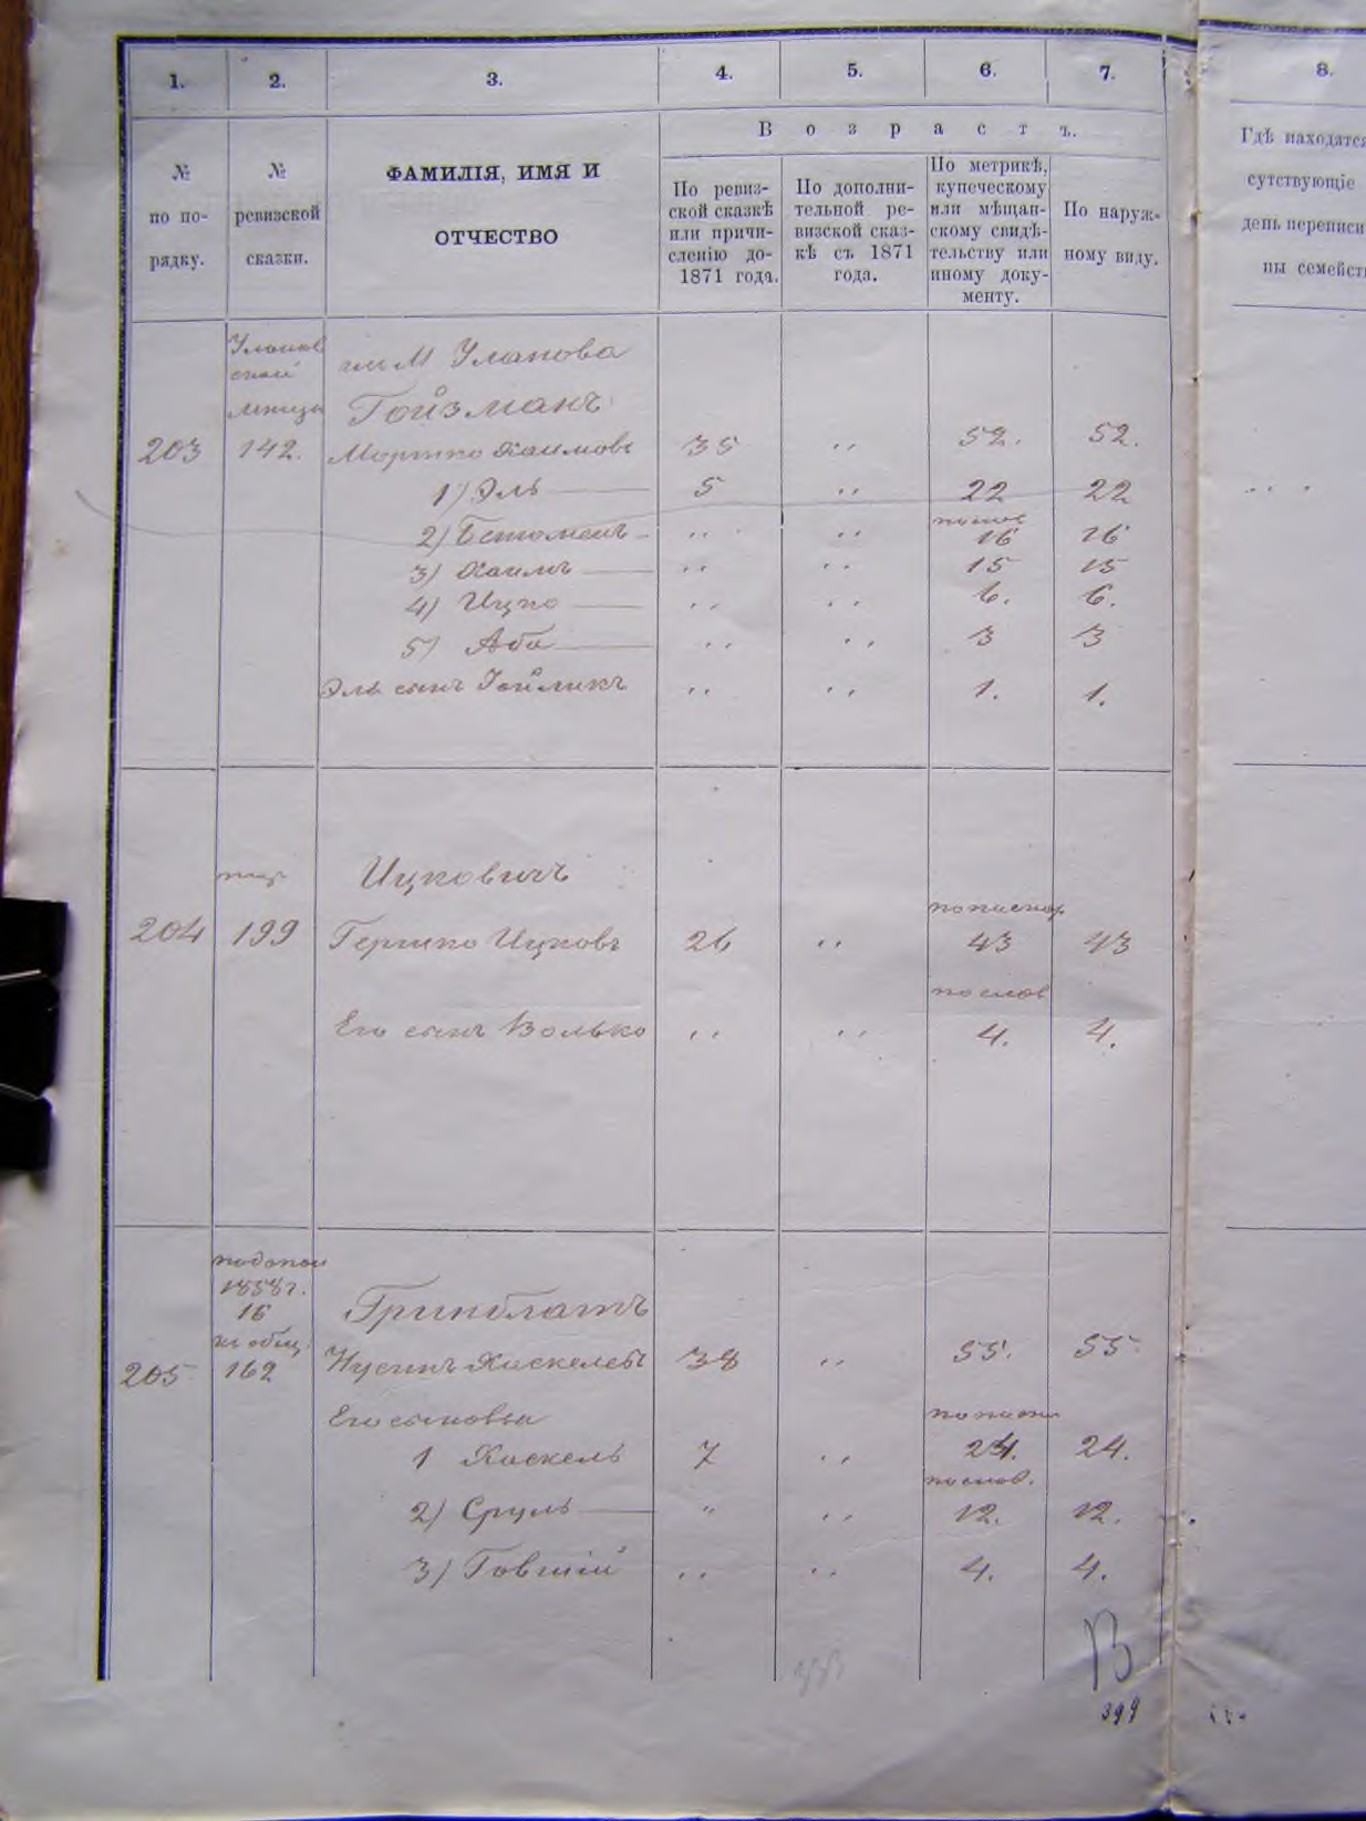 1. 2. 3. 4. 5. 6. 7. 8.
№ по по-рядку.
№ ревизской сказки.
ФАМИЛІЯ, ИМЯ И
ОТЧЕСТВО
Возрастъ.
По ревиз-
ской сказкѣ
или причи-
сленію до-
1871 года.
По дополни-
тельной ре-
визской сказ-
кѣ съ 1871
года.
По метрикѣ,
купеческому
или мѣщан-
скому свидѣ-
тельству или
иному доку-
менту.
По наруж-
ному виду.
Гдѣ находятся
сутствующіе
день переписи
ны семейст
м Уланова
Гойзманъ
203 142. Мортко Хаимовъ 35 " 52. 52.
1) Эль 5 " 22 22
2) " " 16 16
3) Хаимъ " " 15 15
4) Ицко " " 6. 6.
5) Аба " " 3 3
Эль сынъ " " 1. 1.
Ицковичъ
204 199 Гершко Ицковъ 26 " 43 43
по слов
Его сынъ Волько " " 4. 4.
1858 г.
16
Гринблатъ
205 162 Нусинъ Хаскелевъ 38 " 55. 55
Его сыновья
1 Хаскель 7 " 24. 24.
по слов.
2) Сруль " " 12. 12.
3) Говшій " " 4. 4.
333
В
399